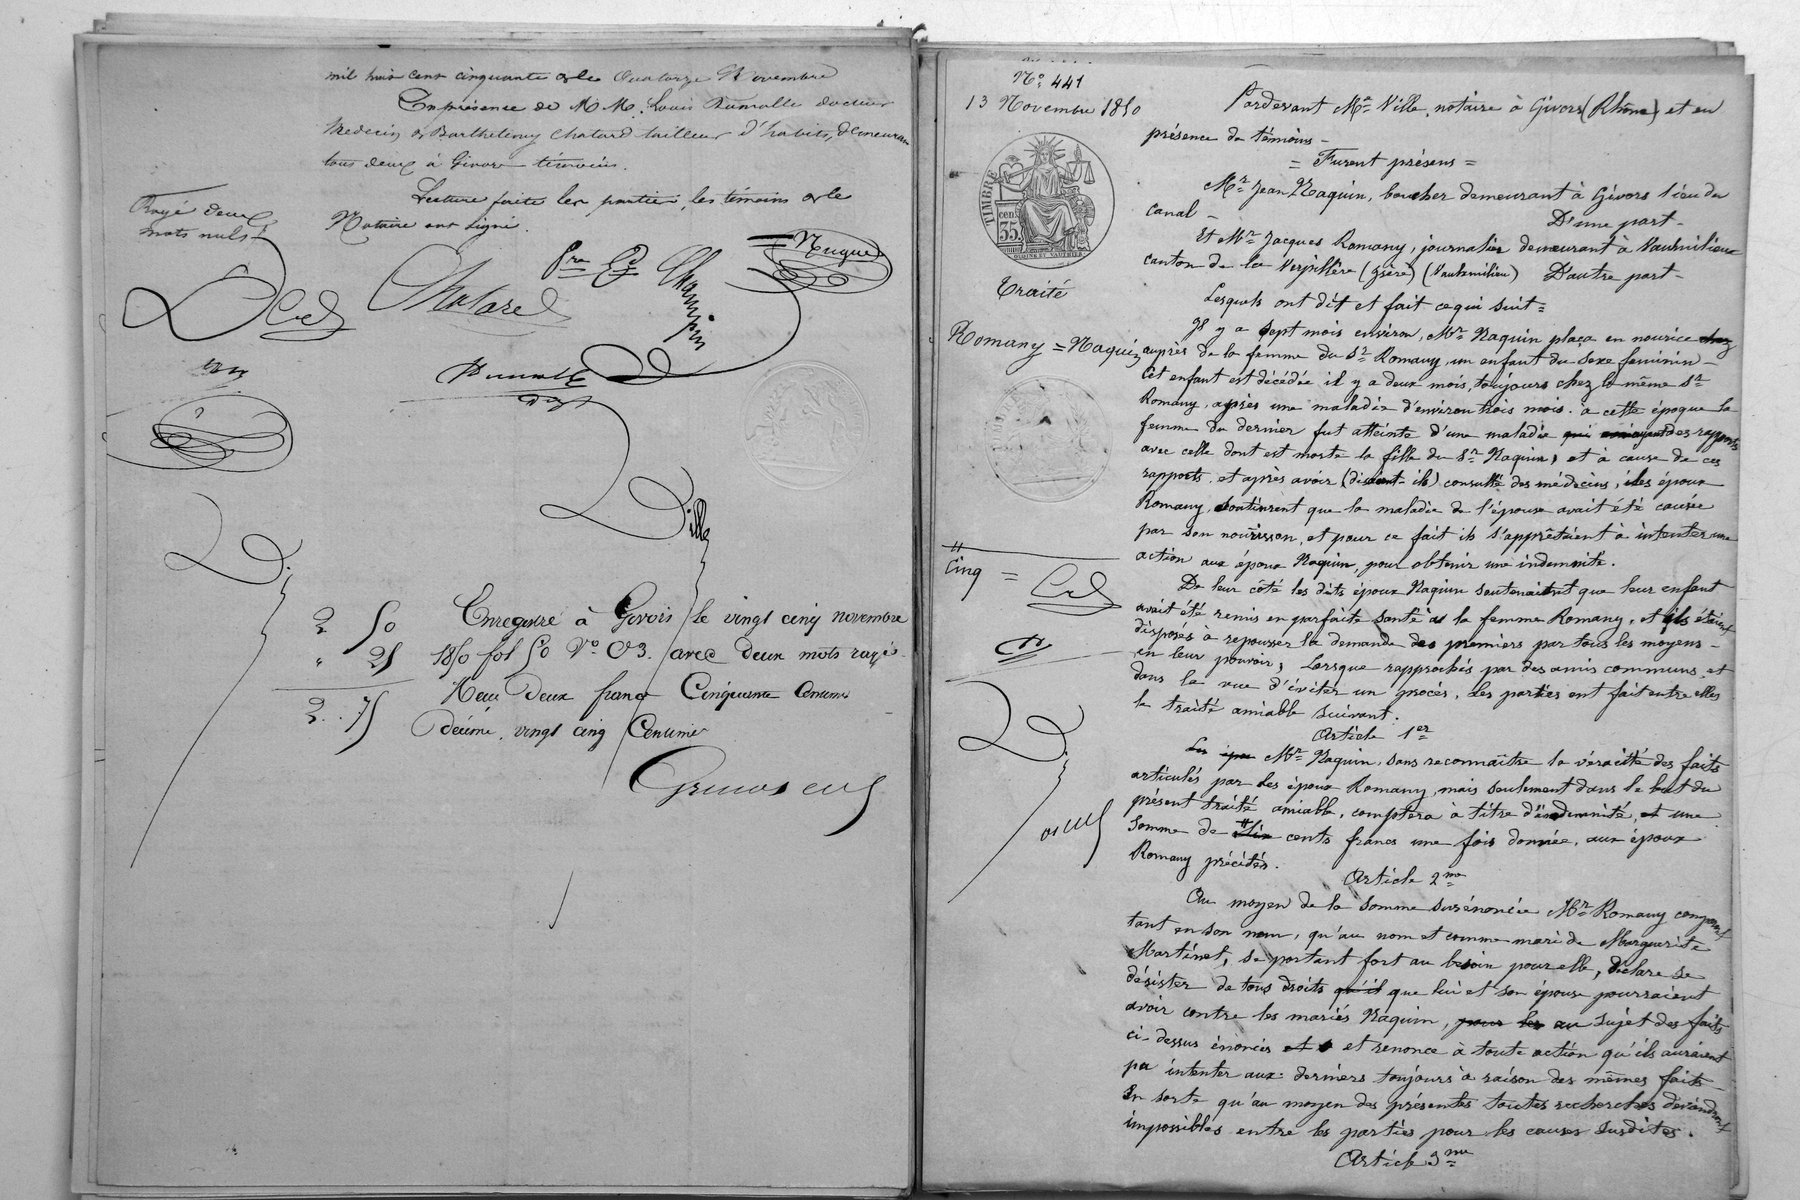 mil huit cent cinquante & le Quatorze Novembre
En présence de MM. Louis Dumolle docteur
Médecin & Barthélemy Chatard tailleur d'habits, demeurant
tous deux à Givors témoins.
Lecture faite les parties, les témoins & le
Notaire ont signé.
Rayé deux
mots nuls
Chatard
Champin
Ville
2 50
" 25
2.75
Enregistré à Givors le vingt cinq novembre
1850 fol 50 Vo C 3. avec deux mots rayés
Reçu Deux francs Cinquante Centimes
Décime, vingt cinq Centimes
No 441
13 Novembre 1850
TIMBRE
cent.
35.
Traité
Romany = Naquin
cinq =
Pardevant Me Ville, notaire à Givors (Rhône), et en
présence de témoins -
= Furent présens =
Mr Jean Naquin, boucher demeurant à Givors lieu du
canal - D'une part -
Et Mr Jacques Romany, journalier demeurant à Vaulxmilieu
canton de la Verpillère (Isère) (Vaulxmilieu) D'autre part -
Lesquels ont dit et fait ce qui suit =
Il y a sept mois environ, Mr Naquin plaça en nourice chez
auprès de la femme du Sr Romany, un enfant du sexe feminin -
Cet enfant est décédée il y a deux mois, toujours chez le même Sr
Romany, après une maladie d'environ trois mois. à cette époque la
femme du dernier fut atteinte d'une maladie qui avait des rapports
avec celle dont est morte la fille du Sr Naquin, et à cause de ces
rapports, et après avoir (disent-ils) consulté des médecins, les époux
Romany, soutinrent que la maladie de l'épouse avait été causée
par son nourisson, et pour ce fait ils s'apprêtaient à intenter une
action aux époux Naquin, pour obtenir une indemnité.
De leur côté les dits époux Naquin soutenaient que leur enfant
avait été remis en parfaite santé à la femme Romany, et ils étaient
disposés à repousser la demande des premiers par tous les moyens -
en leur pouvoir; Lorsque rapprochés par des amis communs et
dans la vue d'éviter un procès, les parties ont fait entre elles
le traité amiable suivant.
Article 1er
Les époux Mr Naquin, sans reconnaître la véracité des faits
articulés par les époux Romany, mais seulement dans le but du
présent traité amiable, comptera à titre d'indemnité, et une
somme de six cents francs une fois donnée, aux époux
Romany précités.
Article 2me
Au moyen de la somme susénoncée Mr Romany comparant
tant en son nom, qu'au nom et comme mari de Marguerite
Martinet, se portant fort au besoin pour elle, déclare se
désister de tous droits qu'il que lui et son épouse pourraient
avoir contre les mariés Naquin, pour les au sujet des faits
ci-dessus énoncés et et renonce à toute action qu'ils auraient
pu intenter aux derniers toujours à raison des mêmes faits -
En sorte qu'au moyen des présentes toutes recherches deviendront
impossibles entre les parties pour les causes susdites.
Article 3me